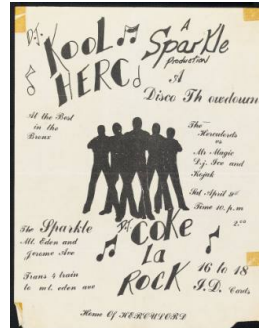 D.J. KOOL HERC
A Sparkle
Production
A
Disco Throwdown
At the Best
in the
Bronx
The
Herculords
vs
Mr Magic
D.j. Ive and
Kojak
Sat April
Time 10. p.m
The Sparkle
Mt. Eden and
Jerome Ave
Trans 4 train
to mt. eden ave
Coke
La
Rock
16 to 18
I.D. Cards
Home Of HERCULORD